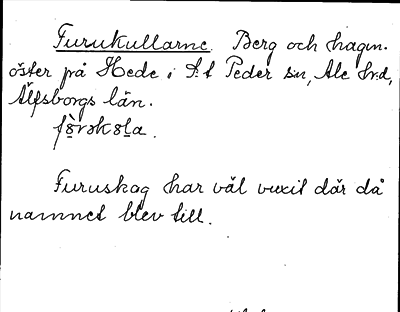 Furukullarne. Berg och hagm.
öster på Hede i S:t Peder sn, Ale hrd,
Älfsborgs län.
Furuskog har väl vuxit där då
namnet blev till.